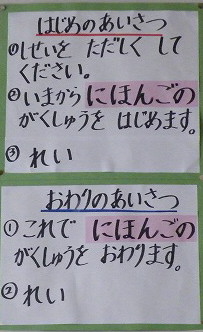 はじめのあいさつ
①しせいを ただしく して
ください。
②いまから にほんごの
がくしゅうを はじめます。
③れい
おわりのあいさつ
①これで にほんごの
がくしゅうを おわります。
②れい